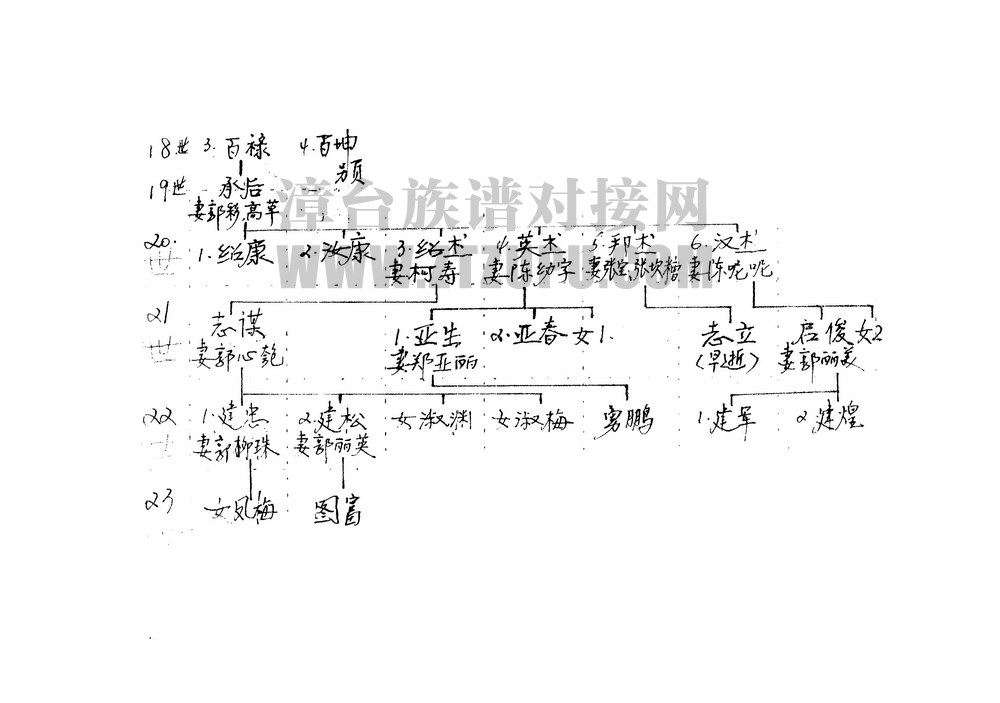 18世 3.百禄 4.百坤
19世 承后
妻郭彩,高草
漳台族谱对接网
20世 1.绍康 2.汝康 3.绍术 4.英术 5.邦术 6.汉术
妻柯寿 妻陈幼字 妻陈呢呢
21世 志谋 1.亚生 2.亚春 女1. 志立 启俊 女2
妻郭心 妻郑亚丽 (早逝) 妻郭丽美
22世 1.建忠 2.建松 女淑渊 女淑梅 男鹏 1.建军 2.建煌
妻郭柳珠 妻郭丽英
23 女凤梅 图富